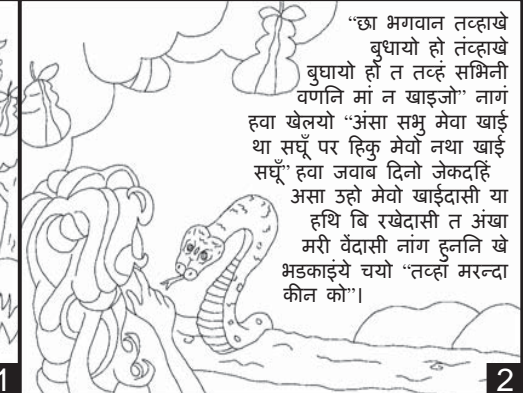 “छा भगवान तव्हाखे
बुधायो हो तंव्हाखे
बुघायो हो त तव्हं सभिनी
वणनि मां न खाइजो” नागं
हवा खेलयो “अंसा सभु मेवा खाई
था सघूँ पर हिकु मेवो नथा खाई
सघूँ” हवा जवाब दिनो जेकदहिं
असा उहो मेवो खाईदासी या
हथि बि रखेदासी त अंखा
मरी वेंदासी नांग हुननि खे
भडकाइंये चयो “तव्हां मरन्दा
कीन को”।
1
2